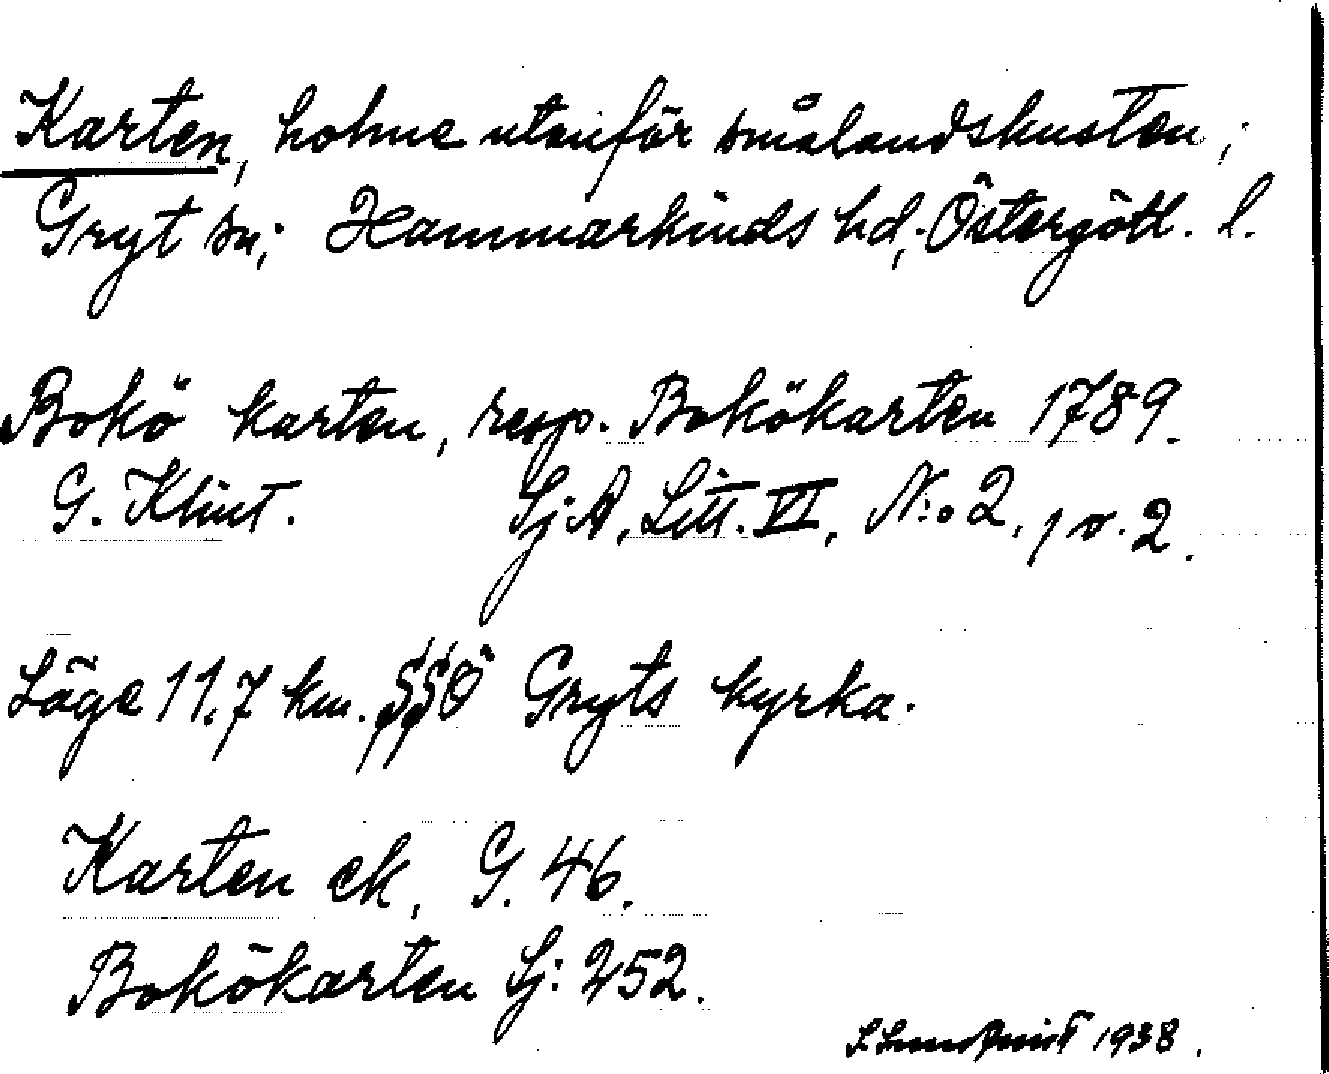 Karten, holme utanför smålandskusten,;
Gryt sn,; Hammarkinds hd,; Östergötl. l.
Bokö karten, resp. Bokökarten 1789.
G. Klint. Sj:A, Litt. VI, N:o 2, 1 v. 2.
Läge 11.7 km. SSÖ Gryts kyrka.
Karten ek, G. 46.
Bokökarten Sj: 252.
1938.